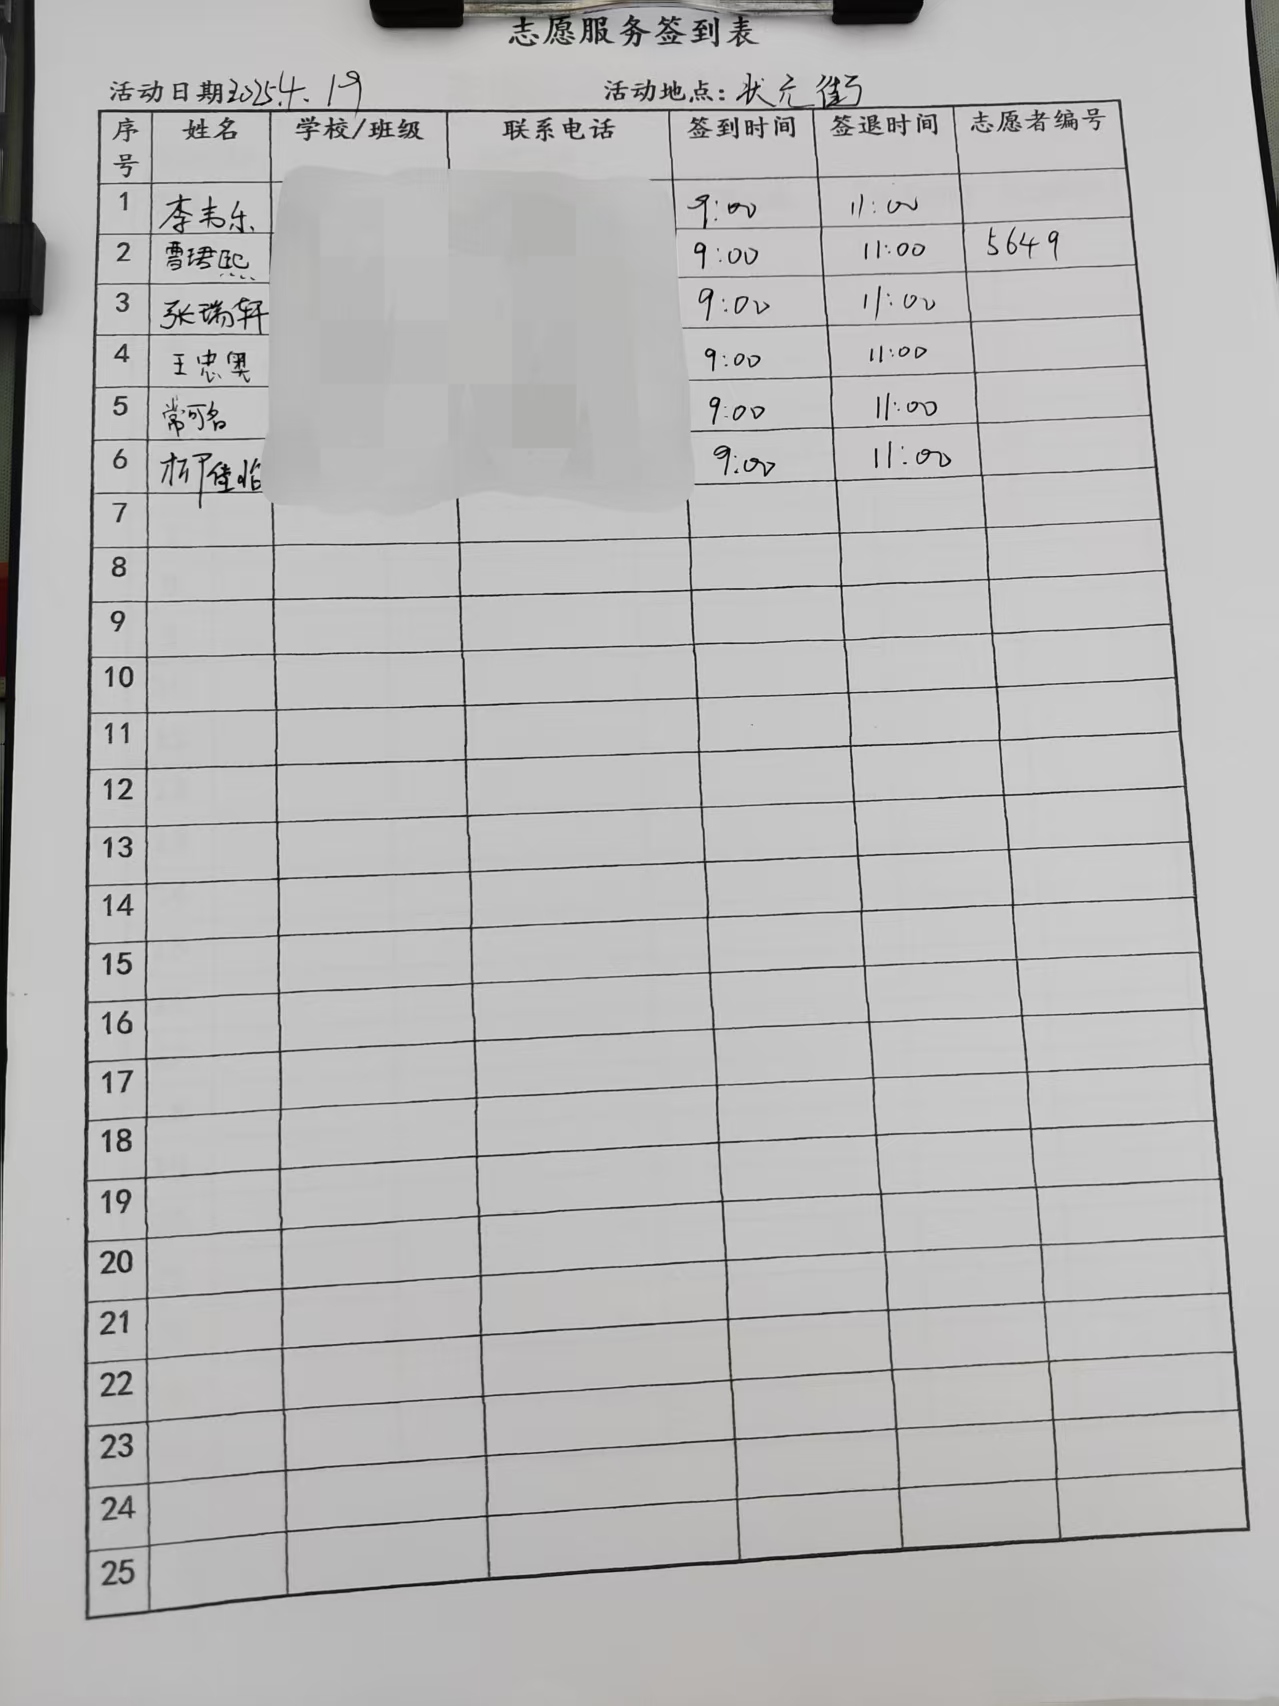 志愿服务签到表
活动日期2025.4.19 活动地点:状元街
序号 姓名 学校/班级 联系电话 签到时间 签退时间 志愿者编号
1 李韦乐 9:00 11:00
2 曹珺熙 9:00 11:00 5649
3 张瑞轩 9:00 11:00
4 王忠奥 9:00 11:00
5 常可名 9:00 11:00
6 佳临 9:00 11:00
7
8
9
10
11
12
13
14
15
16
17
18
19
20
21
22
23
24
25